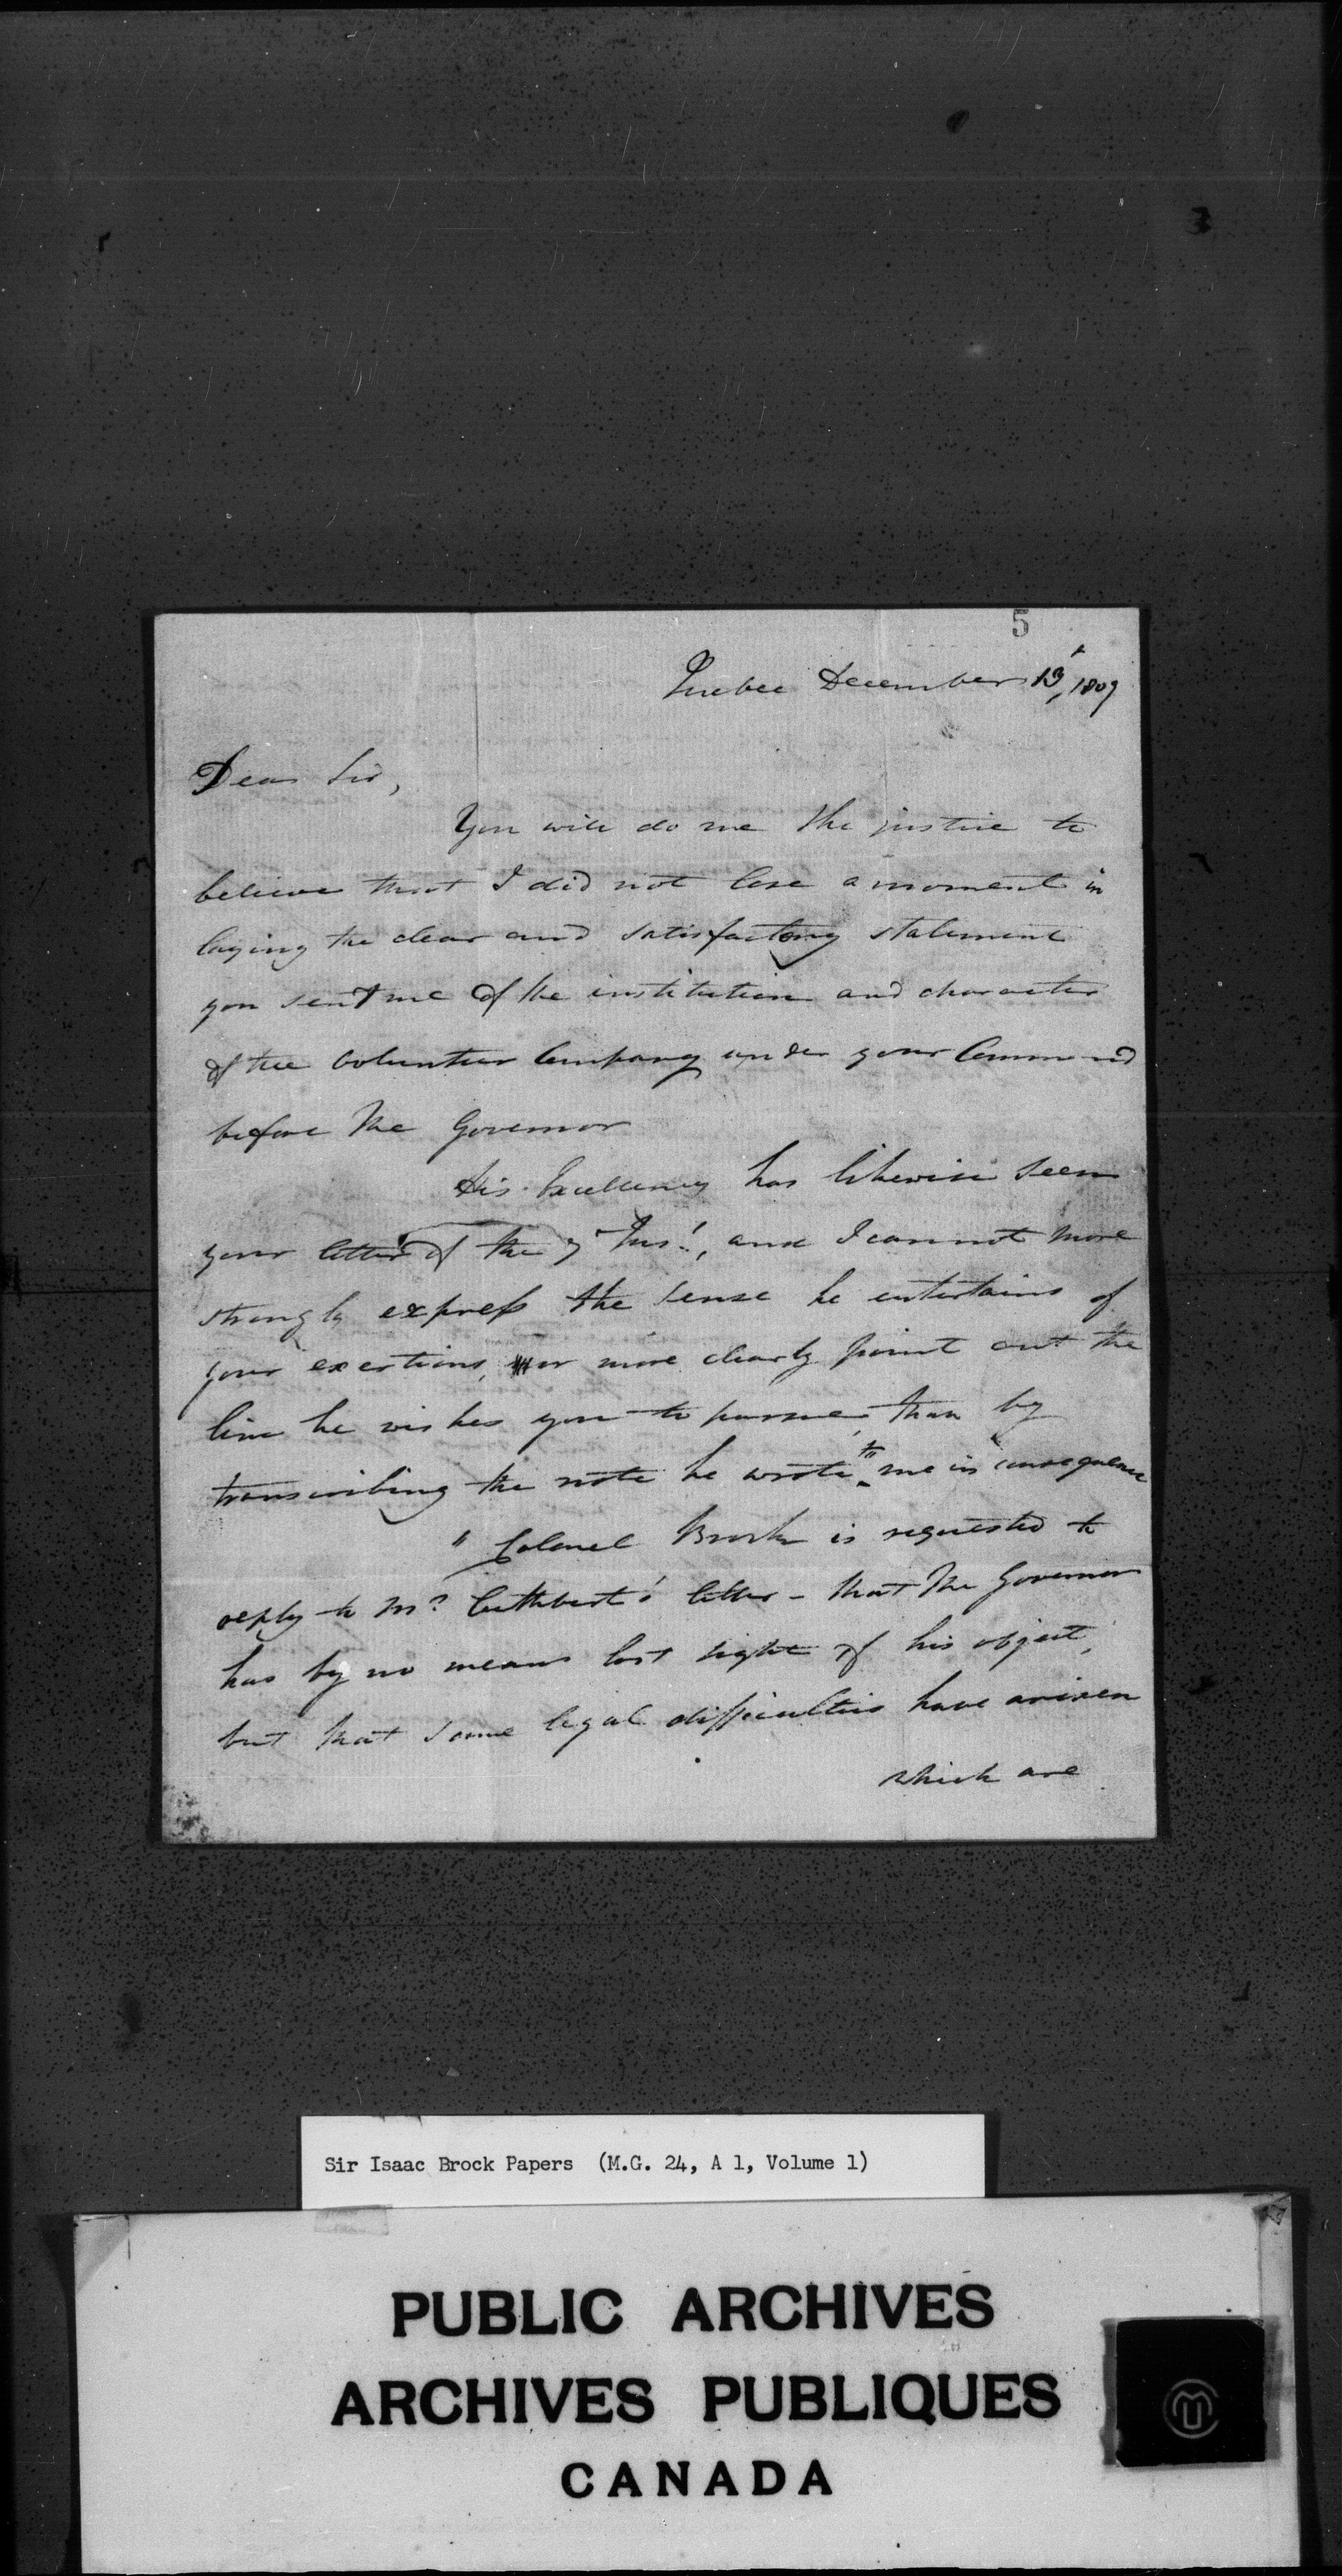 5
Quebec December 13, 1809
Dear Sir,
You will do me the justice to
believe that I did not lose a moment in
laying the clear and satisfactory statement
you sent me of the institution and character
of the Volunteer Company under your Command
before the Governor
His Excellency has likewise seen
your letter of the Inst., and I cannot more
strongly express the sense he entertains of
your exertions, or more clearly point out the
line he wishes you to pursue, than by
transcribing the note he wrote to me in consequence
" Colonel Brock is requested to
reply to Mr. Cuthbert's letter - that the Governor
has by no means lost sight of his object,
but that some legal difficulties have arisen
which are
Sir Isaac Brock Papers (M.G. 24, A 1, Volume 1)
PUBLIC ARCHIVES
ARCHIVES PUBLIQUES
CANADA